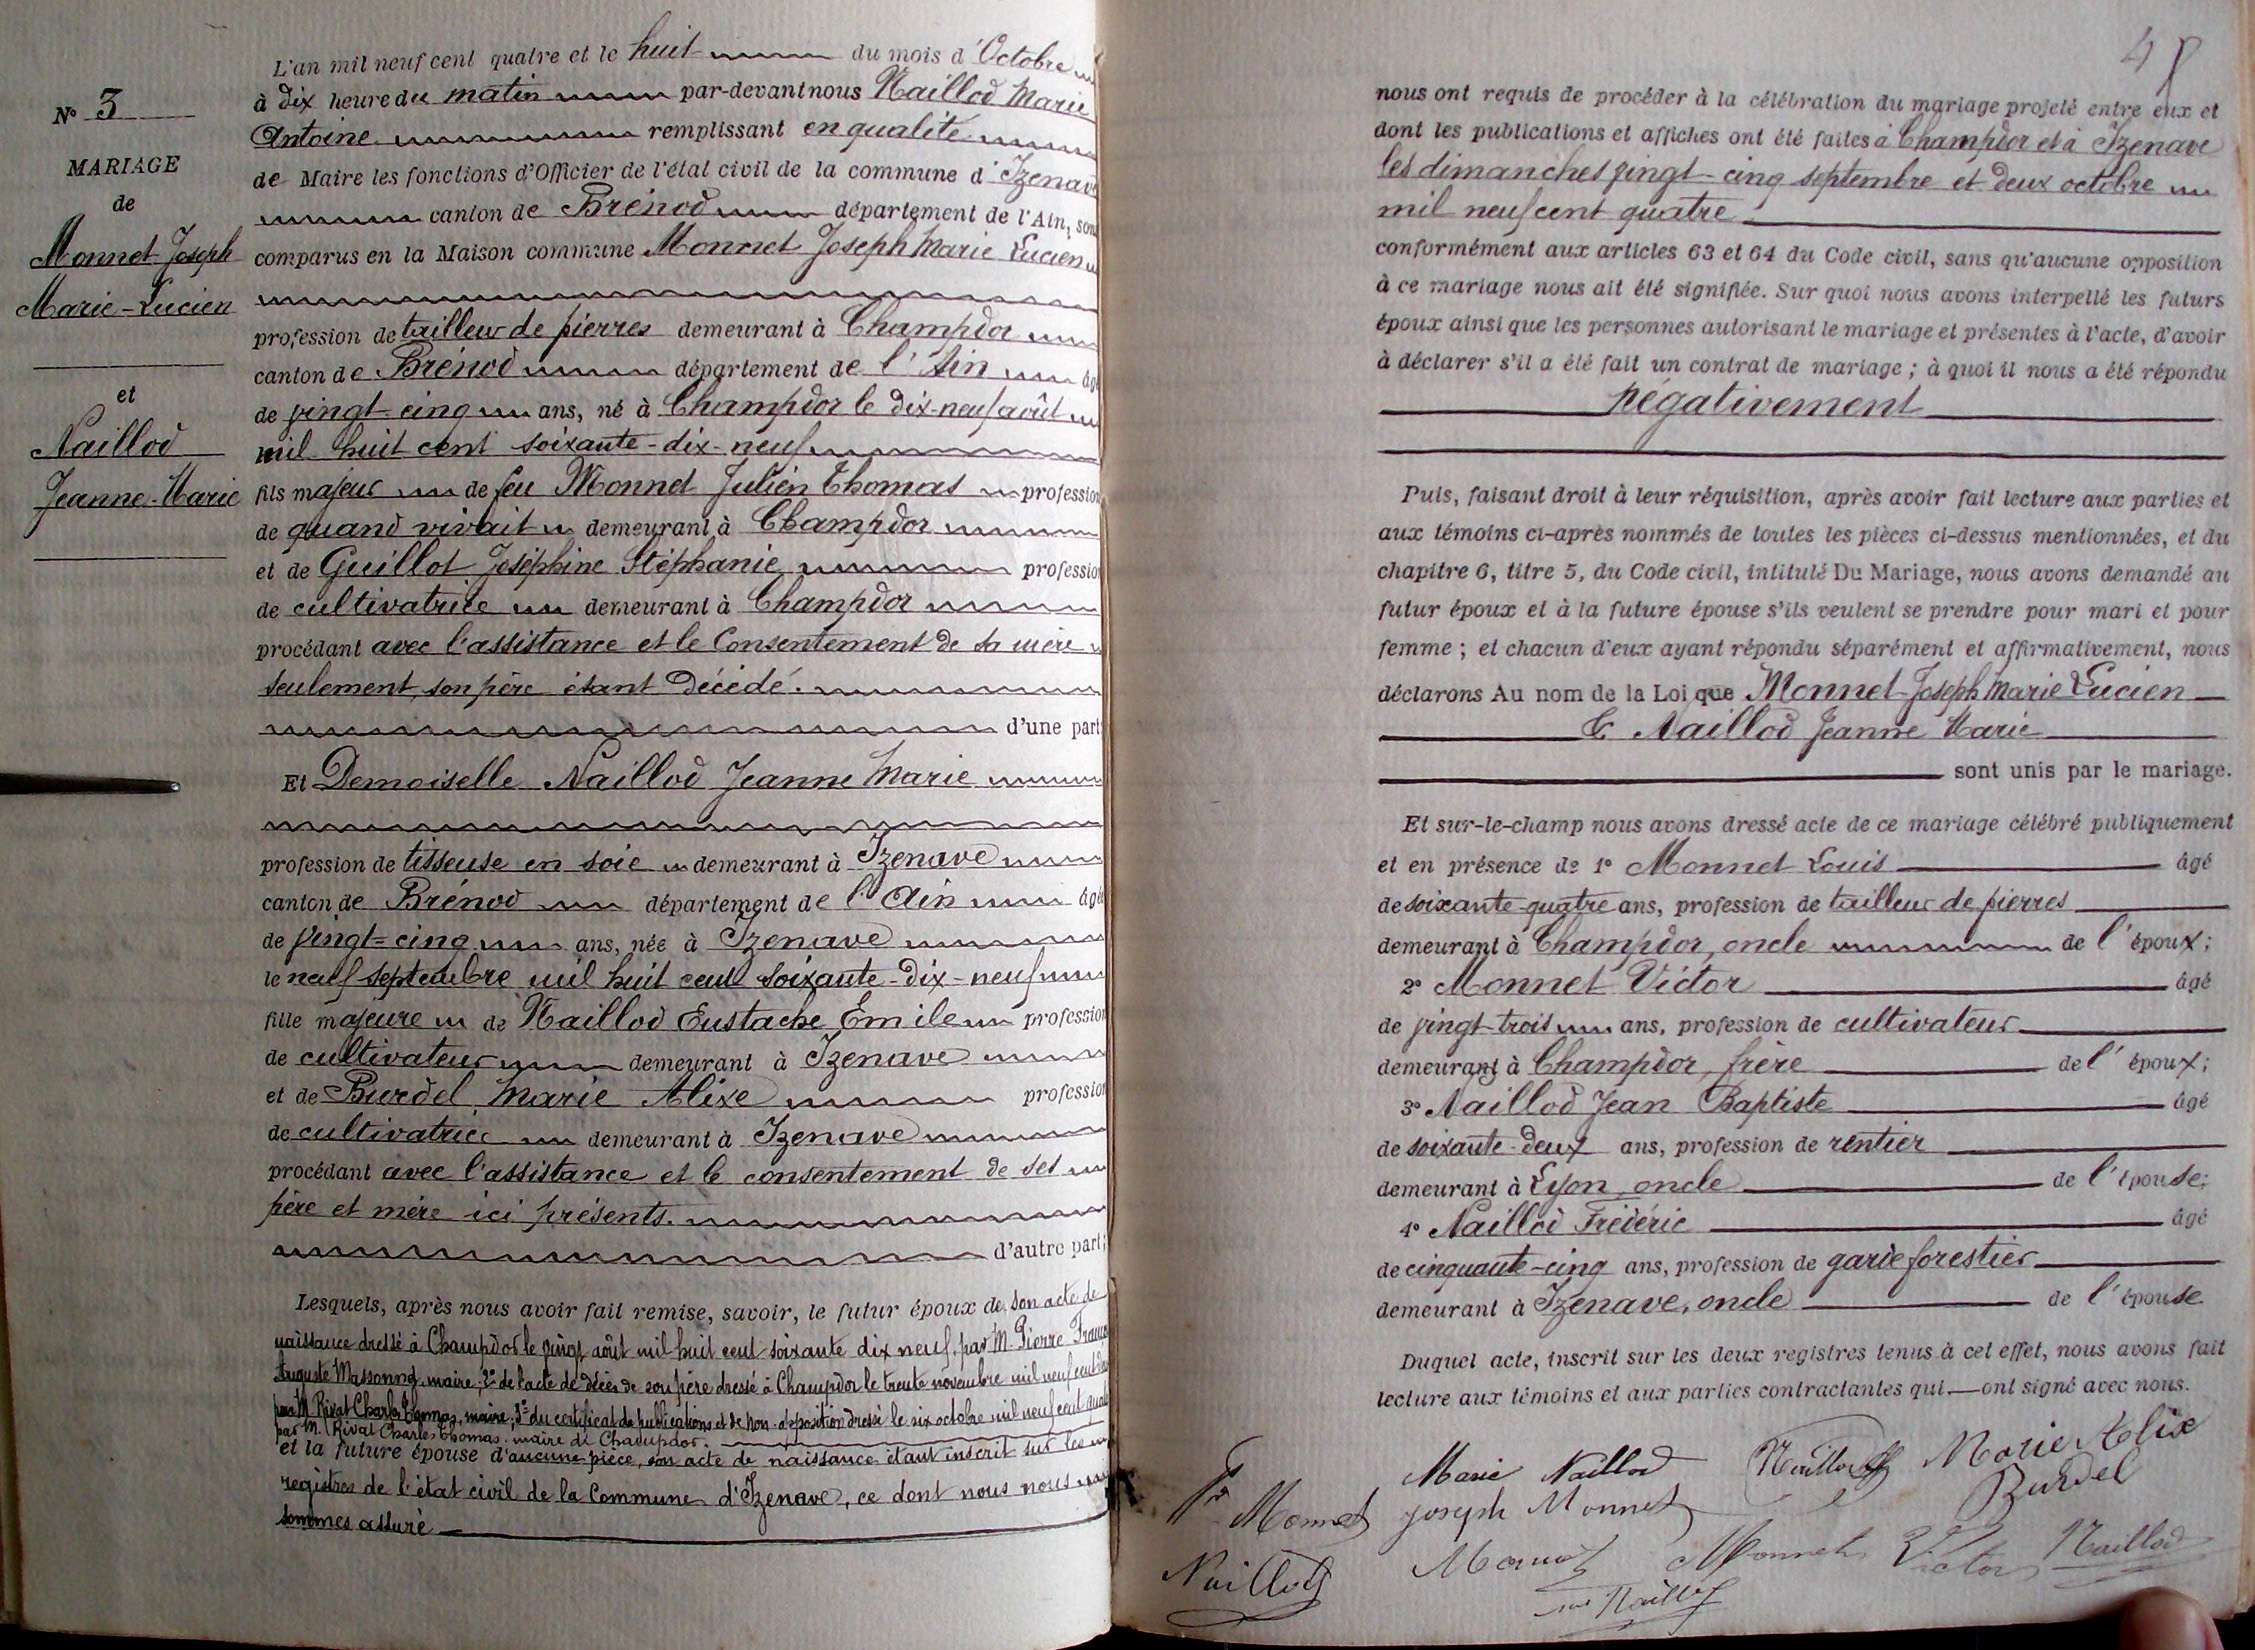 N° 3
MARIAGE
de
Monnet Joseph
Marie-Lucien
et
Naillod
Jeanne-Marie
L'an mil neuf cent quatre et le huit du mois d'Octobre
à dix heure du matin par-devant nous Naillod Marie
Antoine remplissant en qualité
de Maire les fonctions d'Officier de l'état civil de la commune d'Izenave
canton de Brénod département de l'Ain, sont
comparus en la Maison commune Monnet Joseph Marie Lucien
profession de tailleur de pierres demeurant à Champdor
canton de Brénod département de l'Ain âgé
de vingt-cinq ans, né à Champdor le dix-neuf août
mil huit cent soixante-dix-neuf
fils majeur de feu Monnet Julien Thomas profession
de quand vivait demeurant à Champdor
et de Guillot Joséphine Stéphanie profession
de cultivatrice demeurant à Champdor
procédant avec l'assistance et le Consentement de sa mère
seulement, son père étant décédé.
d'une part;
Et Demoiselle Naillod Jeanne Marie
profession de tisseuse en soie demeurant à Izenave
canton de Brénod département de l'Ain âgée
de vingt=cinq ans, née à Izenave
le neuf septembre mil huit cent soixante-dix-neuf
fille majeure de Naillod Eustache Emile profession
de cultivateur demeurant à Izenave
et de Burdel Marie Alixe profession
de cultivatrice demeurant à Izenave
procédant avec l'assistance et le consentement de ses
père et mère ici présents.
d'autre part;
Lesquels, après nous avoir fait remise, savoir, le futur époux de son acte de
naissance dressé à Champdor le vingt août mil huit cent soixante dix neuf, par M. Pierre
Auguste Massonnet, maire; 2° de l'acte de décès de son père dressé à Champdor le trente novembre mil neuf cent
par M. Rival Charles Thomas, maire; 3° du certificat de publications et de non-opposition dressé le six octobre mil neuf cent quatre
par M. Rival Charles Thomas, maire de Champdor.
et la future épouse d'aucune pièce, son acte de naissance étant inscrit sur les
registres de l'état civil de la Commune d'Izenave, ce dont nous nous
sommes assuré
nous ont requis de procéder à la célébration du mariage projeté entre eux et
dont les publications et affiches ont été faites à Champdor et à Izenave
les dimanches vingt-cinq septembre et deux octobre
mil neuf cent quatre
conformément aux articles 63 et 64 du Code civil, sans qu'aucune opposition
à ce mariage nous ait été signifiée. Sur quoi nous avons interpellé les futurs
époux ainsi que les personnes autorisant le mariage et présentes à l'acte, d'avoir
à déclarer s'il a été fait un contrat de mariage; à quoi il nous a été répondu
négativement
Puis, faisant droit à leur réquisition, après avoir fait lecture aux parties et
aux témoins ci-après nommés de toutes les pièces ci-dessus mentionnées, et du
chapitre 6, titre 5, du Code civil, intitulé Du Mariage, nous avons demandé au
futur époux et à la future épouse s'ils veulent se prendre pour mari et pour
femme; et chacun d'eux ayant répondu séparément et affirmativement, nous
déclarons Au nom de la Loi que Monnet Joseph Marie Lucien
& Naillod Jeanne Marie
sont unis par le mariage.
Et sur-le-champ nous avons dressé acte de ce mariage célébré publiquement
et en présence de 1° Monnet Louis âgé
de soixante-quatre ans, profession de tailleur de pierres
demeurant à Champdor, oncle de l'époux;
2° Monnet Victor âgé
de vingt-trois ans, profession de cultivateur
demeurant à Champdor, frère de l'époux;
3° Naillod Jean Baptiste âgé
de soixante-deux ans, profession de rentier
demeurant à Lyon, oncle de l'épouse;
4° Naillod Frédéric âgé
de cinquante-cinq ans, profession de garde forestier
demeurant à Izenave, oncle de l'épouse
Duquel acte, inscrit sur les deux registres tenus à cet effet, nous avons fait
lecture aux témoins et aux parties contractantes qui ont signé avec nous.
Marie Naillod Naillod Marie Alix
Burdel
Monnet Joseph Monnet
Naillod Monnet Monnet Victor Naillod
Naillod